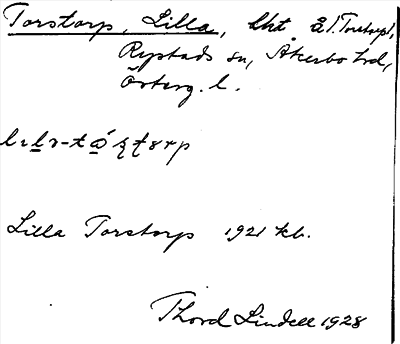 Torstorp, Lilla, lht å 1 Torstorp,
Rystads sn, Åkerbo hd,
Österg. l.
Lilla Torstorp 1921 kb.
Thord Lindell 1928